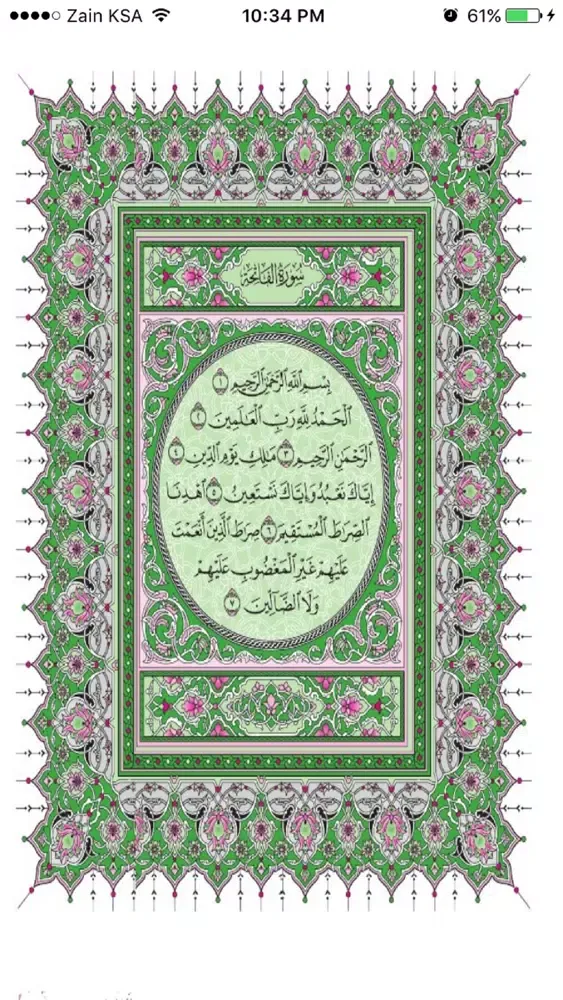 Zain KSA 10:34 PM 61%
سُورَةُ الفَاتِحَةِ
بِسْمِ ٱللَّهِ ٱلرَّحْمَٰنِ ٱلرَّحِيمِ ١
ٱلْحَمْدُ لِلَّهِ رَبِّ ٱلْعَٰلَمِينَ ٢
ٱلرَّحْمَٰنِ ٱلرَّحِيمِ ٣ مَٰلِكِ يَوْمِ ٱلدِّينِ ٤
إِيَّاكَ نَعْبُدُ وَإِيَّاكَ نَسْتَعِينُ ٥ ٱهْدِنَا
ٱلصِّرَٰطَ ٱلْمُسْتَقِيمَ ٦ صِرَٰطَ ٱلَّذِينَ أَنْعَمْتَ
عَلَيْهِمْ غَيْرِ ٱلْمَغْضُوبِ عَلَيْهِمْ
وَلَا ٱلضَّآلِّينَ ٧